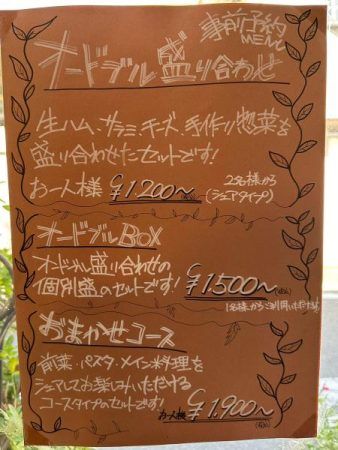 事前予約
MENU
オードブル盛り合わせ
生ハム、サラミ、チーズ、手作り惣菜を
盛り合わせたセットです!
お一人様 ¥1200〜
2名様から
(シェアタイプ)
オードブルBOX
オードブル盛り合わせの
個別盛のセットです! ¥1500〜
1名様からご利用いただけます
おまかせコース
前菜・パスタ・メイン料理を
シェアしてお楽しみいただける
コースタイプのセットです! お一人様 ¥1,900〜